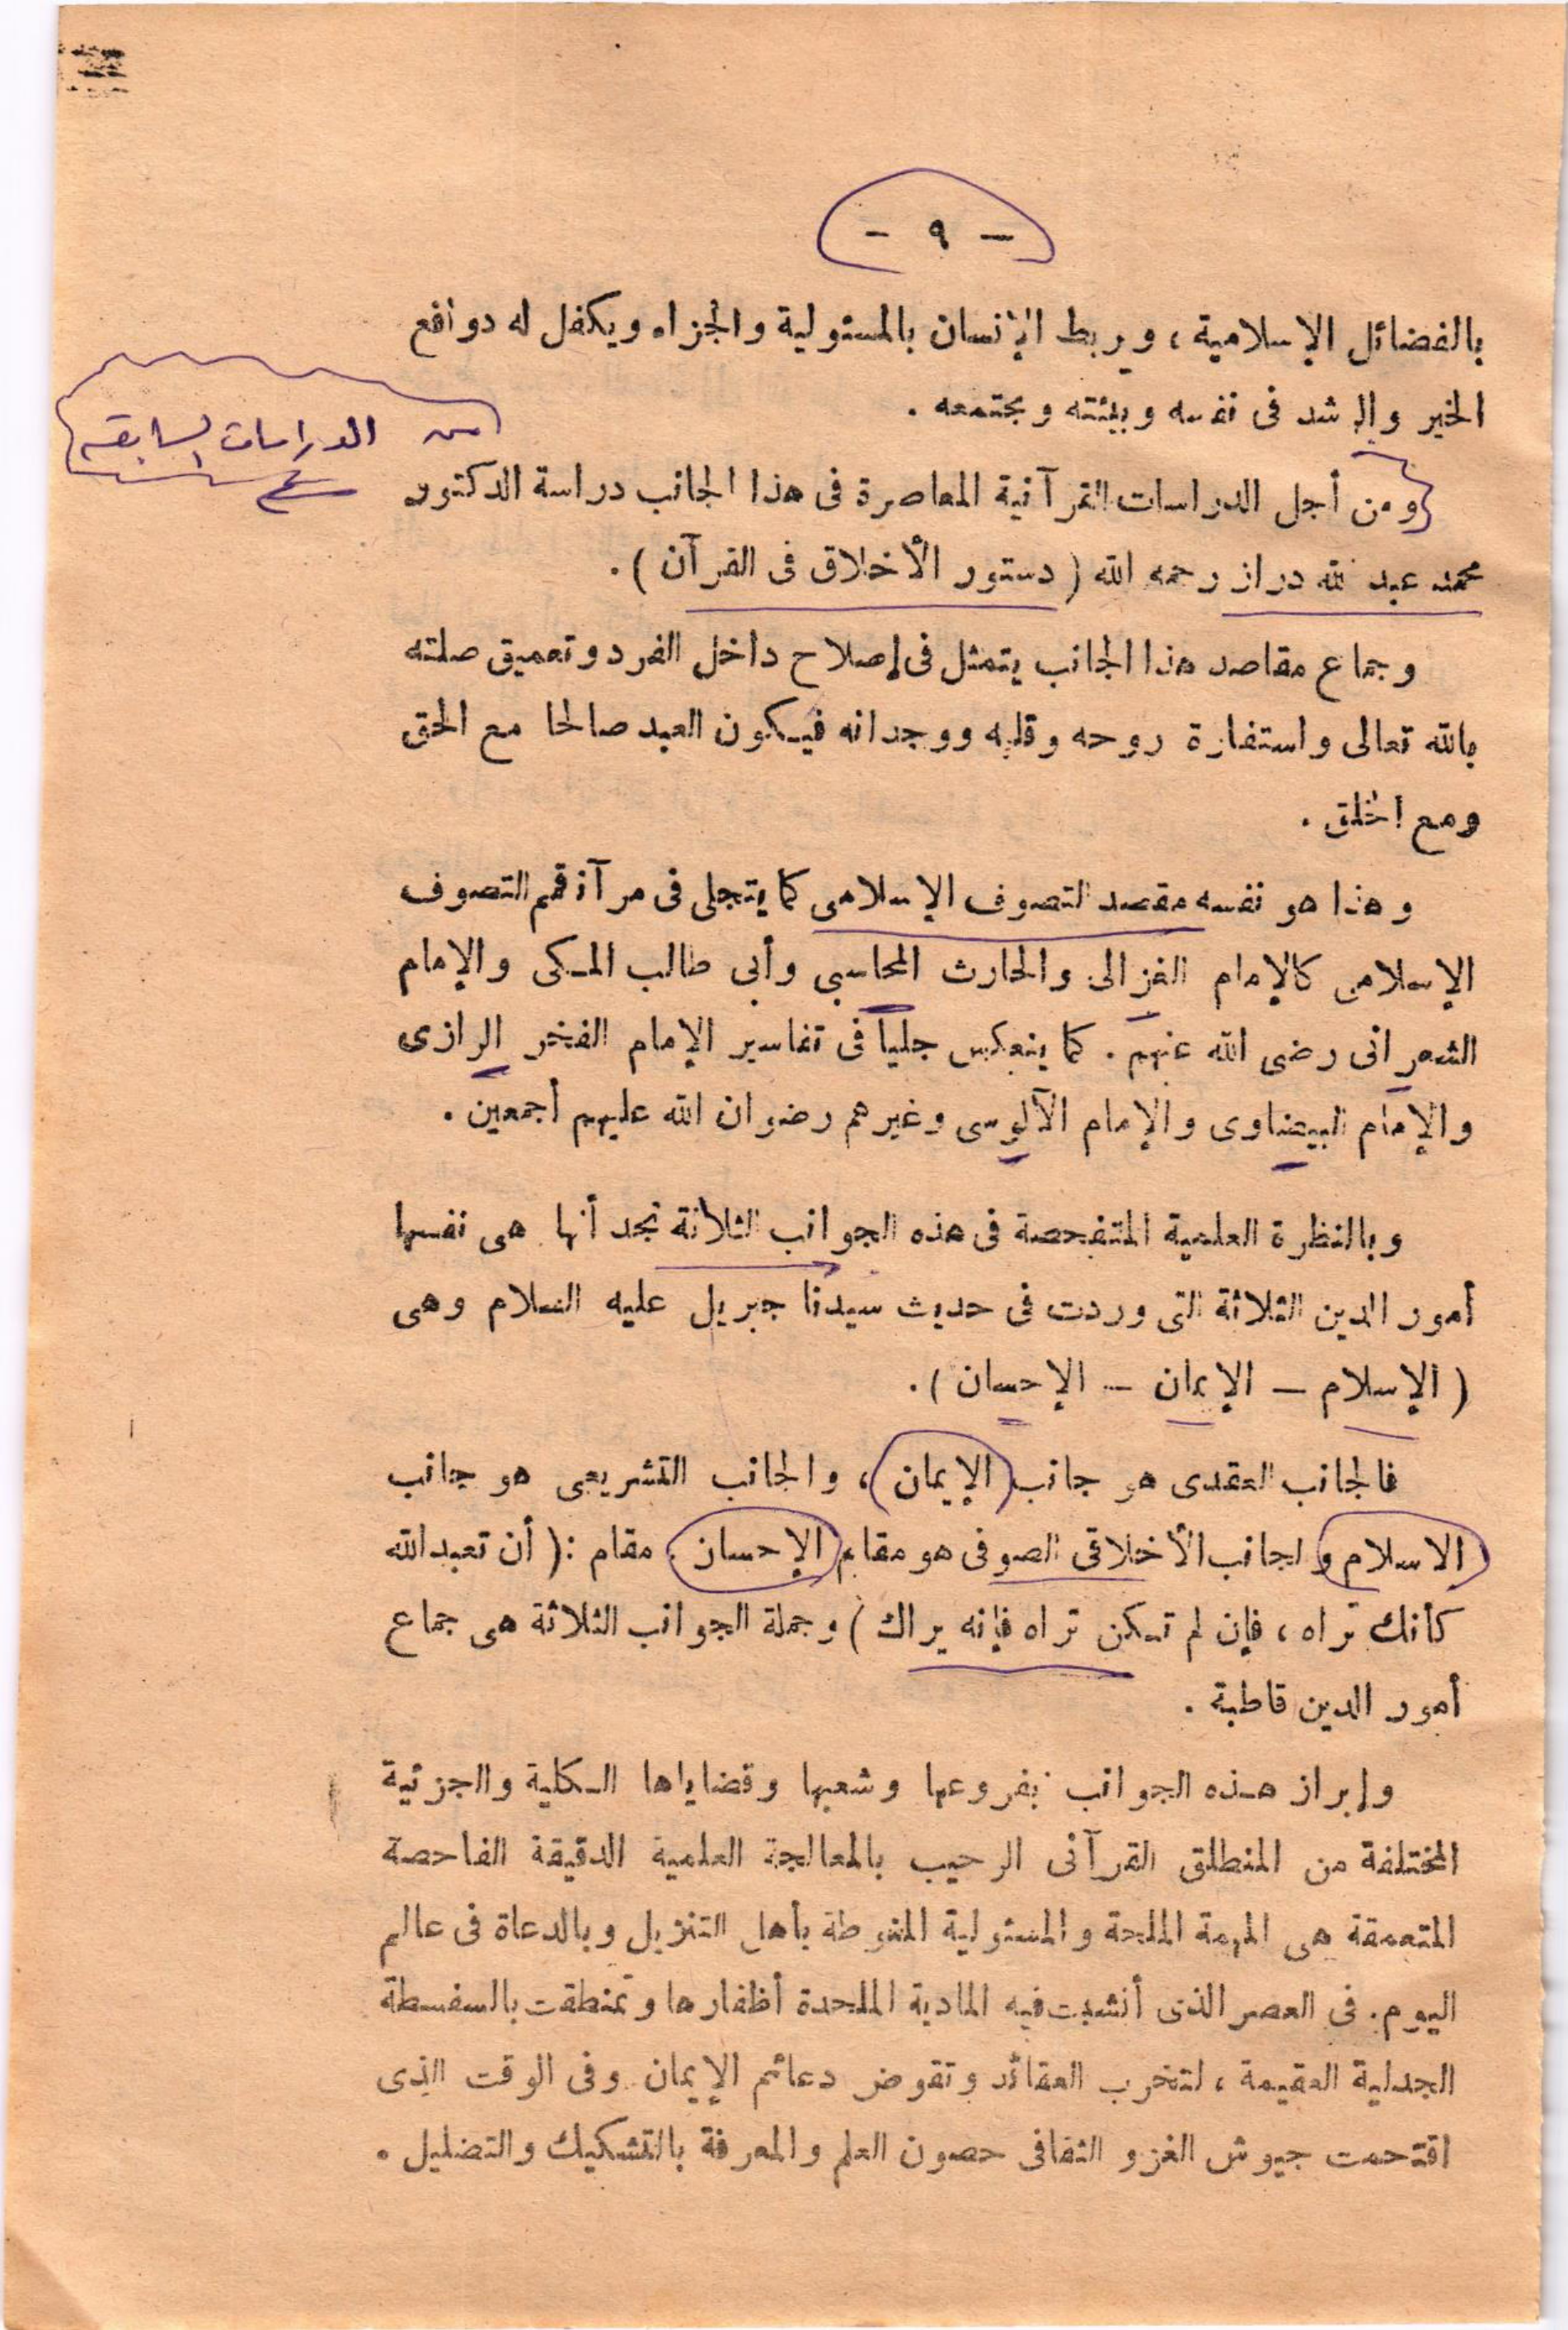 - ٩ -
بالفضائل الإسلامية ، ويربط الإنسان بالمسئولية والجزاء ويكفل له دوافع
الخير والرشد فى نفسه وبيئته ومجتمعه .
من الدراسات السابقة
ومن أجل الدراسات القرآنية المعاصرة فى هذا الجانب دراسة الدكتور
محمد عبد الله دراز رحمه الله ( دستور الأخلاق فى القرآن ) .
وجماع مقاصد هذا الجانب يتمثل فى إصلاح داخل الفرد وتعميق صلته
بالله تعالى واستفارة روحه وقلبه ووجدانه فيكون العبد صالحا مع الحق
ومع الخلق .
وهذا هو نفسه مقصد التصوف الإسلامى كما يتجلى فى مرآة قمم التصوف
الإسلامى كالإمام الغزالى والحارث المحاسبى وأبى طالب المكى والإمام
الشعرانى رضى الله عنهم . كما ينعكس جلياً فى تفاسير الإمام الفخر الرازى
والإمام البيضاوى والإمام الآلوسى وغيرهم رضوان الله عليهم أجمعين .
وبالنظرة العلمية المتفحصة فى هذه الجوانب الثلاثة نجد أنها هى نفسها
أمور الدين الثلاثة التى وردت فى حديث سيدنا جبريل عليه السلام وهى
( الإسلام – الإيمان – الإحسان ) .
فالجانب العقدى هو جانب ( الإيمان ) ، والجانب التشريعى هو جانب
الاسلام والجانب الأخلاقى الصوفى هو مقام الإحسان . مقام : ( أن تعبد الله
كأنك تراه ، فإن لم تكن تراه فإنه يراك ) وجملة الجوانب الثلاثة هى جماع
أمور الدين قاطبة .
وإبراز هذه الجوانب بفروعها وشعبها وقضاياها الكلية والجزئية
المختلفة من المنطلق القرآنى الرحيب بالمعالجة العلمية الدقيقة الفاحصة
المتعمقة هى المهمة الملحة والمسئولية المنوطة بأهل التنزيل وبالدعاة فى عالم
اليوم . فى العصر الذى أنشبت فيه المادية الملحدة أظفارها وتمنطقت بالسفسطة
الجدلية العقيمة ، لتخرب العقائد وتقوض دعائم الإيمان . وفى الوقت الذى
اقتحمت جيوش الغزو الثقافى حصون العلم والمعرفة بالتشكيك والتضليل .